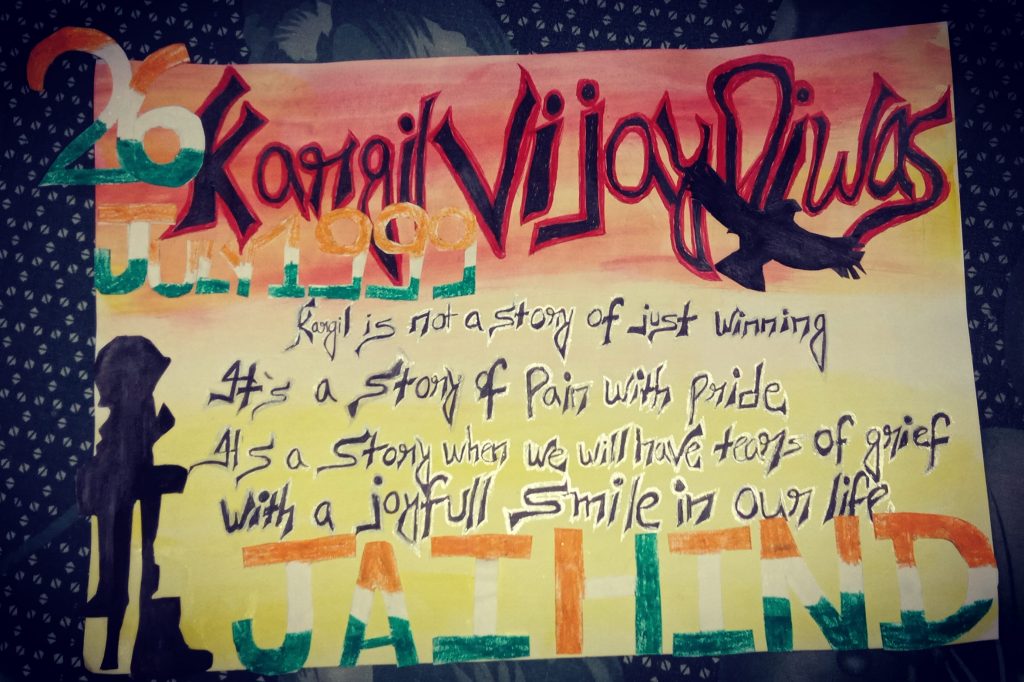 26
Kargil Vijay Diwas
July 1999
Kargil is not a story of just winning
It's a Story of Pain with pride
It's a Story when we will have tears of grief
with a joyfull Smile in our life.
JAI HIND